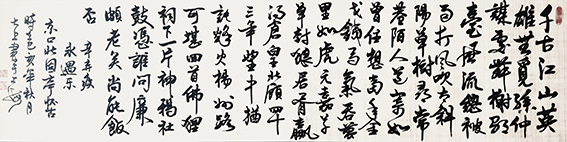 千古江山英
雄無覓孫仲
謀處舞榭歌
臺風流總被
雨打風吹去斜
陽草樹尋常
巷陌人道寄奴
曾住想當年金
戈鐵馬氣吞萬
里如虎元嘉草
草封狼居胥贏
得倉皇北顧四十
三年望中猶
記烽火揚州路
可堪回首佛狸
祠下一片神鴉社
鼓憑誰問廉
頗老矣尚能飯
否 辛弃疾
永遇樂
京口北固亭懷古
亥年秋月